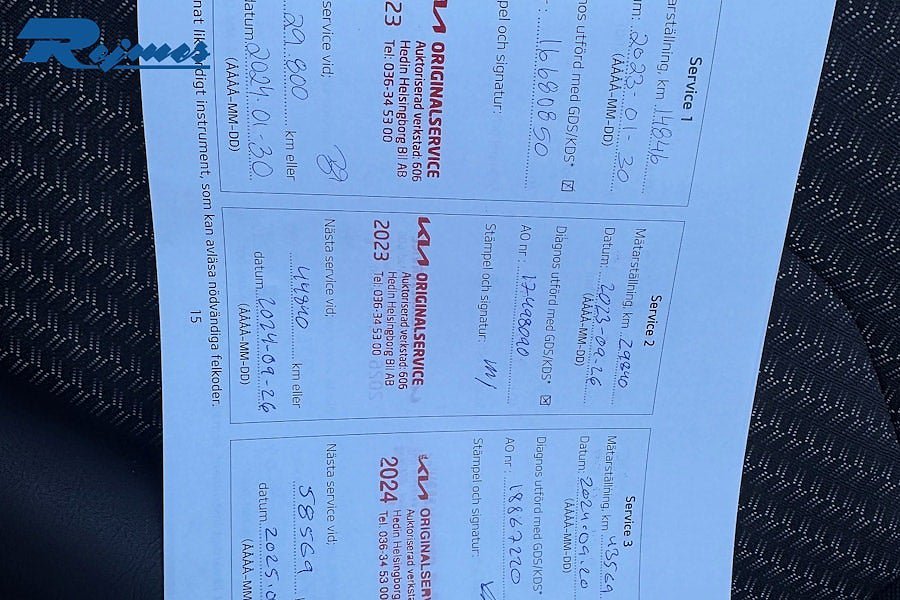 Rejmes
Service 1
Mätarställning, km 14846
Datum: 2023-01-30
(ÅÅÅÅ-MM-DD)
Diagnos utförd med GDS/KDS* ☒
16680850
Stämpel och signatur:
KIA ORIGINALSERVICE
Auktoriserad verkstad: 606
Hedin Helsingborg Bil AB
Tel: 036-34 53 00
service vid;
29.800 km eller
datum 2024.01-30
(ÅÅÅÅ-MM-DD)
Service 2
Mätarställning, km 29840
Datum: 2023-09-26
(ÅÅÅÅ-MM-DD)
Diagnos utförd med GDS/KDS* ☒
AO nr: 17498090
Stämpel och signatur:
KIA ORIGINALSERVICE
Auktoriserad verkstad: 606
2023 Hedin Helsingborg Bil AB
Tel. 036-34 53 00
Nästa service vid;
44840 km eller
datum 2024-09-26
(ÅÅÅÅ-MM-DD)
Service 3
Mätarställning, km 43569
Datum: 2024-09.20
(ÅÅÅÅ-MM-DD)
Diagnos utförd med GDS/KDS*
AO nr: 18667220
Stämpel och signatur:
KIA ORIGINALSERV
Auktoriserad verksta
2024 Hedin Helsingborg
Tel. 036-34 53 00
Nästa service vid;
58569
datum 2025.0
(ÅÅÅÅ-MM
nat likvärdigt instrument, som kan avläsa nödvändiga felkoder.
15